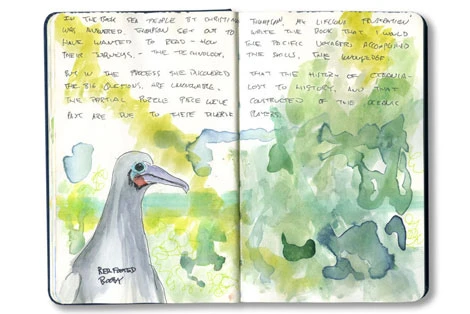 IN THE BOOK SEA PEOPLE BY CHRISTINA THOMPSON, MY LIFELONG FRUSTRATION
WAS ANSWERED. THOMPSON SET OUT TO WRITE THE BOOK THAT I WOULD
HAVE WANTED TO READ - HOW THE PACIFIC VOYAGERS ACCOMPLISHED
THEIR JOURNEYS, - THE TECHNOLOGY, THE SKILLS, THE KNOWLEDGE
BUT IN THE PROCESS SHE DISCOVERED THAT THE HISTORY OF OCEANIA
THE BIG QUESTIONS, ARE UNKNOWABLE, LOST TO HISTORY, AND THAT
THE PARTIAL PUZZLE PIECE WE'VE CONSTRUCTED OF THE OCEANS
ARE DUE TO THESE PLAYERS.
RED FOOTED
BOOBY